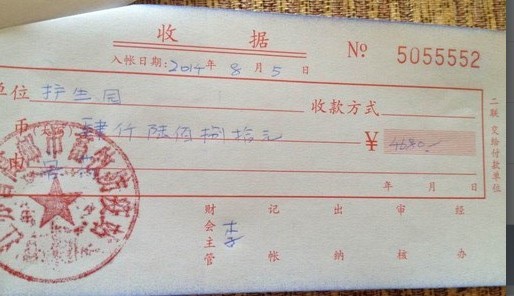 收 据
№ 5055552
入帐日期:2014年 8 月 5 日
单位 护生园 收款方式
币 肆仟陆佰捌拾元 ¥ 4680.-
由
年 月 日
二联 交给付款单位
财会主管 李 记帐 出纳 审核 经办